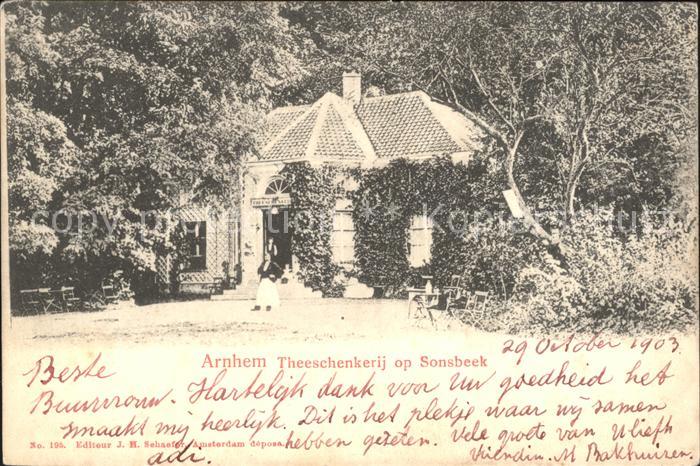 THEESCHENKERIJ
Arnhem Theeschenkerij op Sonsbeek
29 October 1903
Beste
Buurvrouw. Hartelijk dank voor Uw goedheid het
smaakt mij heerlijk. Dit is het plekje waar wij samen
No. 195. Editeur J. H. Schaefer, Amsterdam déposé.
hebben gezeten. Vele groete van U liefh
adi. Vriendin. M Bakhuizen.